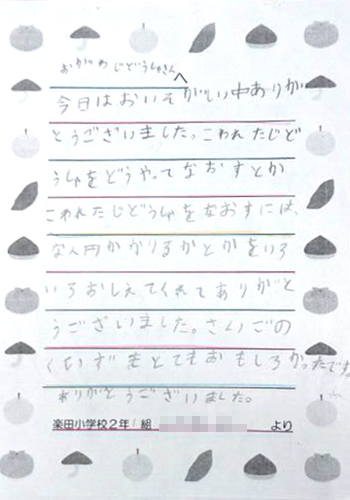 おがわじどうしゃさんへ
今日はおいそがしい中ありが
とうございました。こわれたじど
うしゃをどうやってなおすとか
こわれたじどうしゃをなおすには、
なん円かかりるかとかをいろ
いろおしえてくれてありがと
うございました。さいごの
くいずもとてもおもしろかったです
ありがとうございました。
楽田小学校2年1組 より